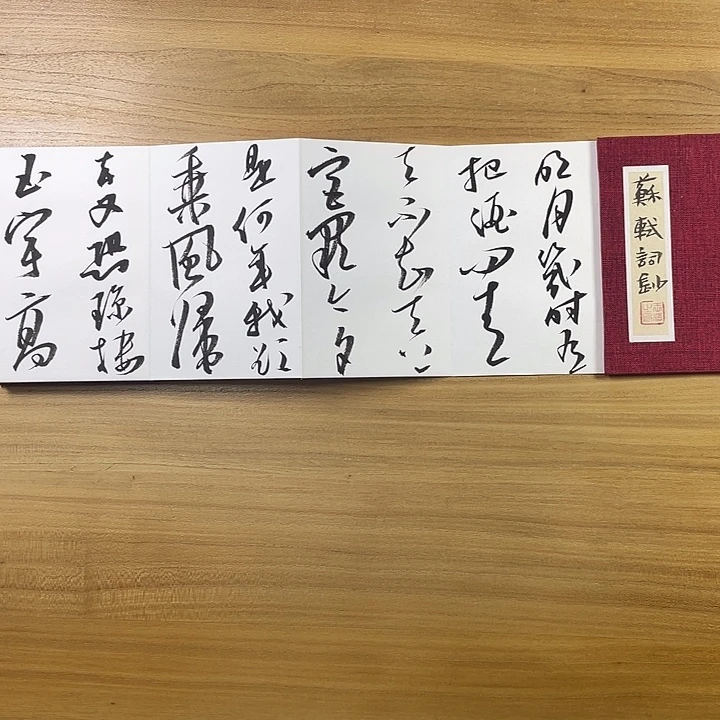 蘇軾詞鈔
明月幾時有
把酒問青
天不知天上
宮闕今夕
是何年我欲
乘風歸
去又恐瓊樓
玉宇高